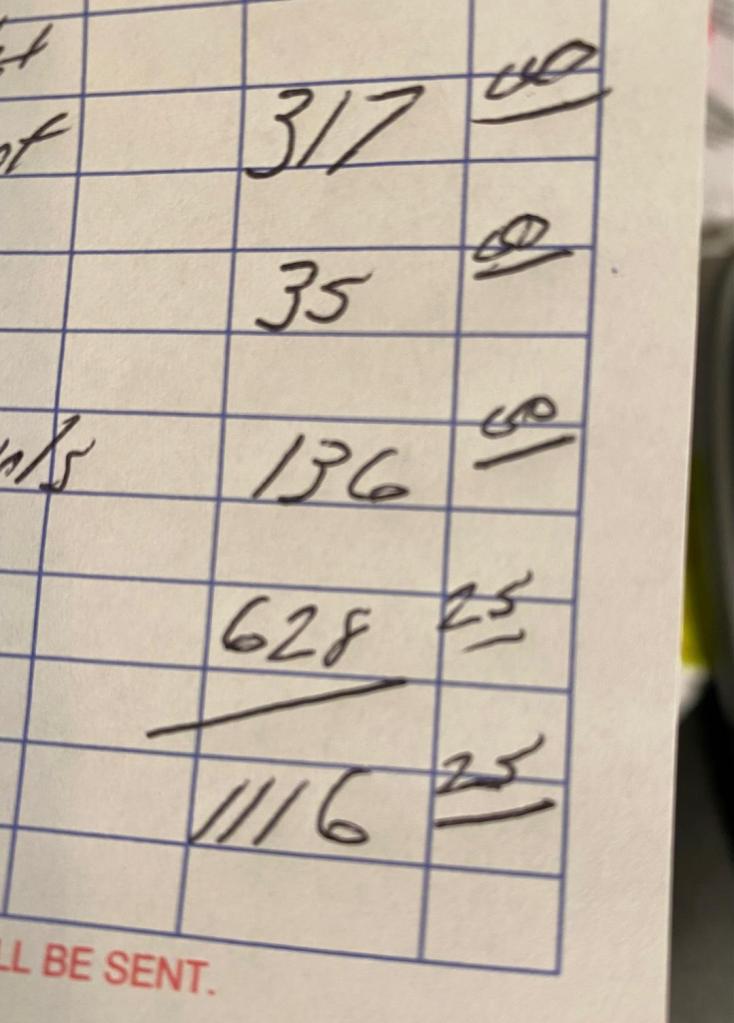 317 00
35 00
136 00
628 25
1116 25
LL BE SENT.